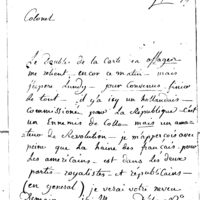 Colonel
Le double de la carte sa
me retient encor ce matin - mais
j'espere lundy - pour convenus finir
de tout - il y a icy un hollandais
Commissionné pour la Republique C'est
un Ennemis de Colla - mais un ama-
teur de Revolution - je m'apperçois avec
peine que la haine des francais pour
les americains - est dans les deux
partis - royalistes - et républicains -
(en general) je verai votre neveu